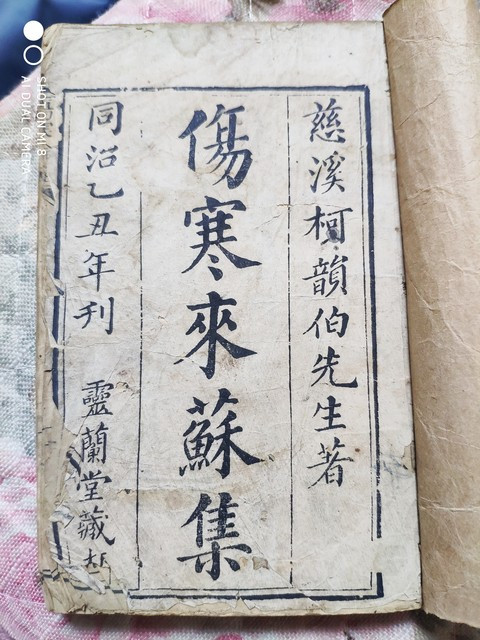 慈溪柯韻伯先生著
傷寒來蘇集
同治乙丑年刊 靈蘭堂藏
SHOT ON MI 8
AI DUAL CAMERA